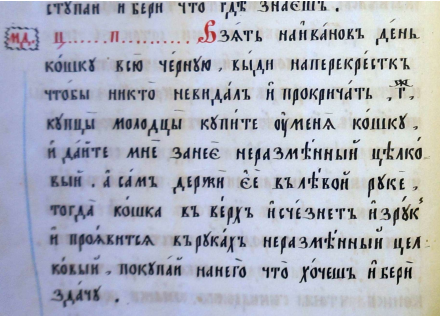 ступай и бери что гдѣ знаєшъ .
мд. ц......п.......... Взѧть на и҆ванов̾ъ день
ко́шку всю че́рную , вы́ди наперекрестк
чтобы никто̀ невида́лъ и҆ прокрича́ть , г҃ ,
купцы̀ молодцы̀ купи́те оу҆меня̀ ко́шку ,
и҆ да́йте мнѣ̀ занеѐ неразмѣ́нный цѣлко́
вый . а҆ са́мъ держѝ є҆ѐ въ лѣ́вой рукѣ̀ ,
тогда̀ кошка въ ве́рхъ и҆счезнетъ и҆зрук
и҆ проѧ́вится въ рука́хъ неразмѣ́нный цел
ко́вый . покупа́й нанего̀ что̀ хо́чешъ и҆ берѝ
зда́чу .